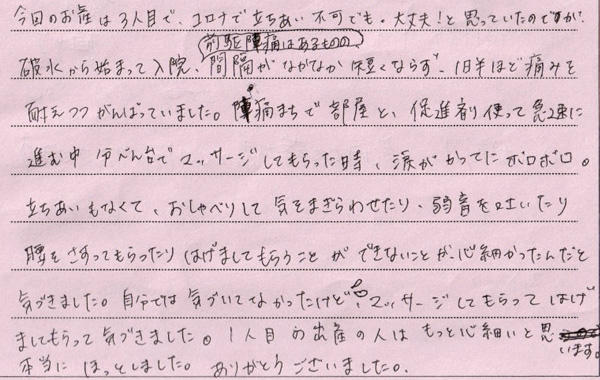 今回のお産は3人目で、コロナで立ちあい不可でも。大丈夫!と思っていたのですが、
前駆陣痛はあるものの、
破水から始まって入院、間隔がなかなか短くならず、1日半ほど痛みを
耐えつつがんばっていました。陣痛まちで部屋と、促進剤使って急速に
進む中 分べん台でマッサージしてもらった時、涙がかってにボロボロ。
立ちあいもなくて、おしゃべりして気をまぎらわせたり、弱音を吐いたり
腰をさすってもらったりはげましてもらうことができないことが、心細かったんだと
気づきました。自分では気づいてなかったけど、マッサージしてもらってはげ
ましてもらって気づきました。1人目の出産の人はもっと心細いと思
います。
本当にほっとしました。ありがとうございました。